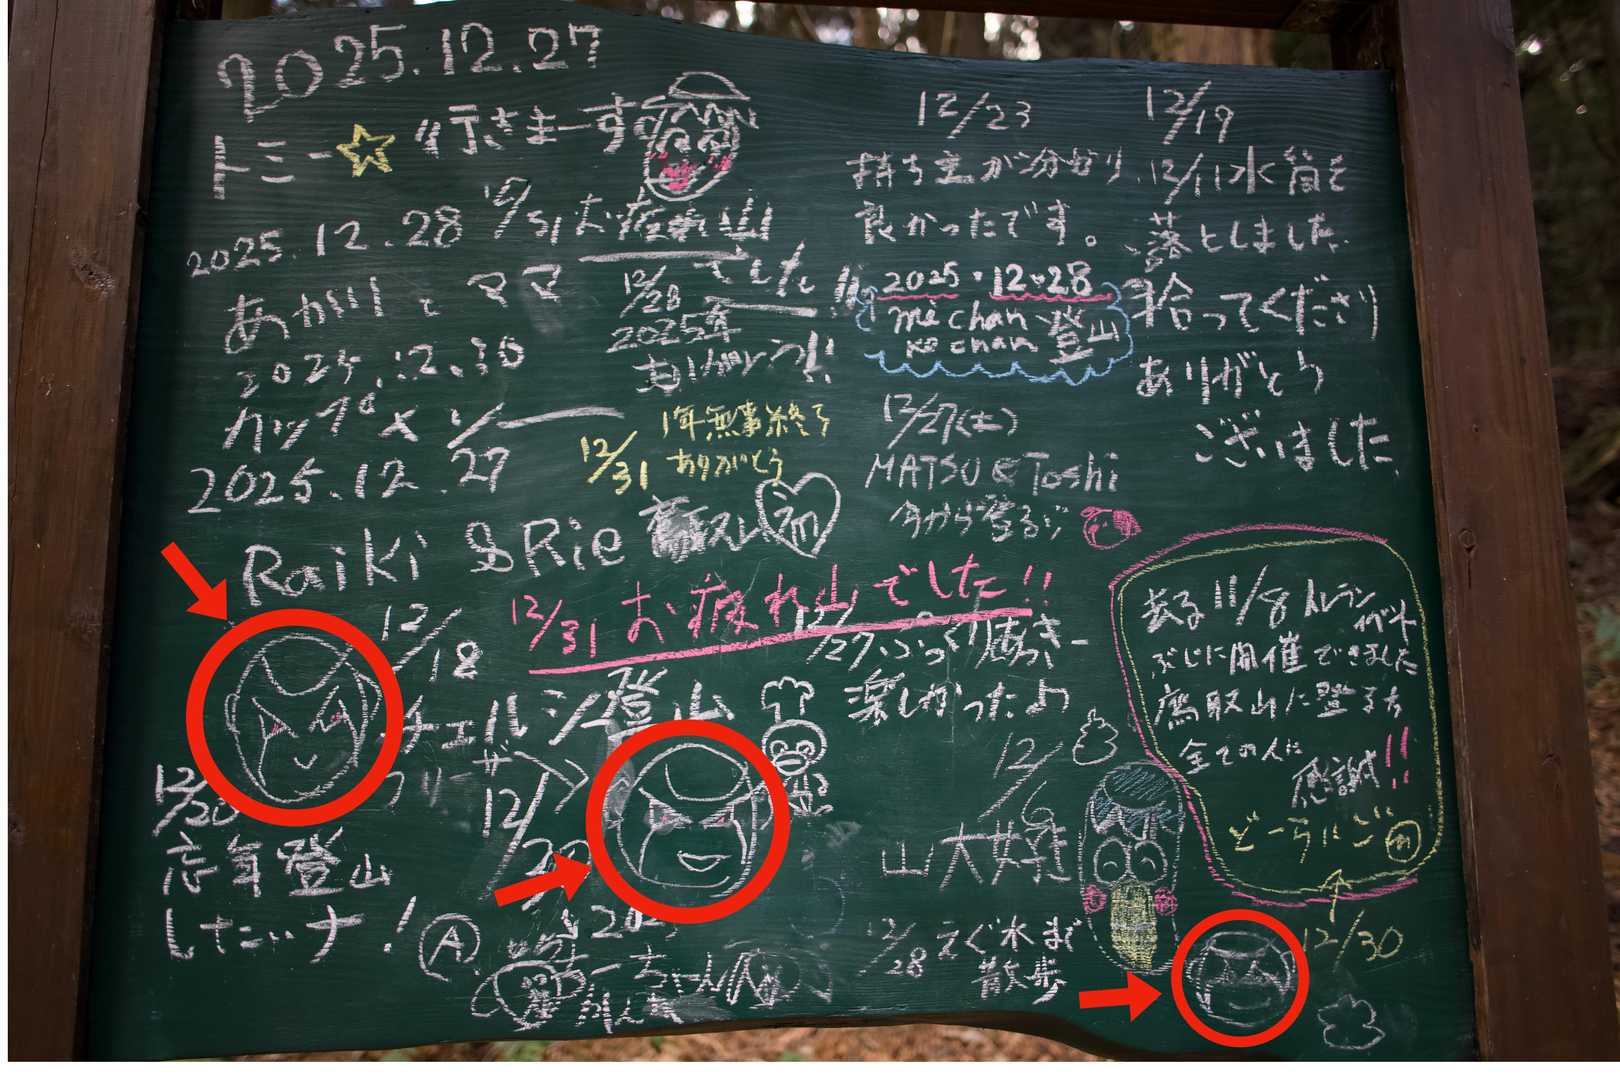 2025.12.27
トミー☆ 行きまーす
12/31 お疲れ山
でした!!
2025.12.28
あかりとママ
2025.12.30
カップメン
2025.12.27
Raiki & Rie
12/28
2025年
12/31 1年無事終了
ありがとう
12/31 お疲れ山でした!!
12/18
チェルシー登山
12/20
忘年登山
したいナ!
A
12/23
持ち主が分かり
良かったです。
12/19
12/11水筒を
落としました
拾ってくださり
ありがとう
ございました
2025・12・28
me chan
ko chan 登山
12/27(土)
MATSU & Toshi
今から登るゾ
12/27
楽しかったよ
12/6
12/28
散歩
去る 11/8 トレラン
ぶじに開催できました
鷹取山に登る方
全ての人に
感謝!!
12/30